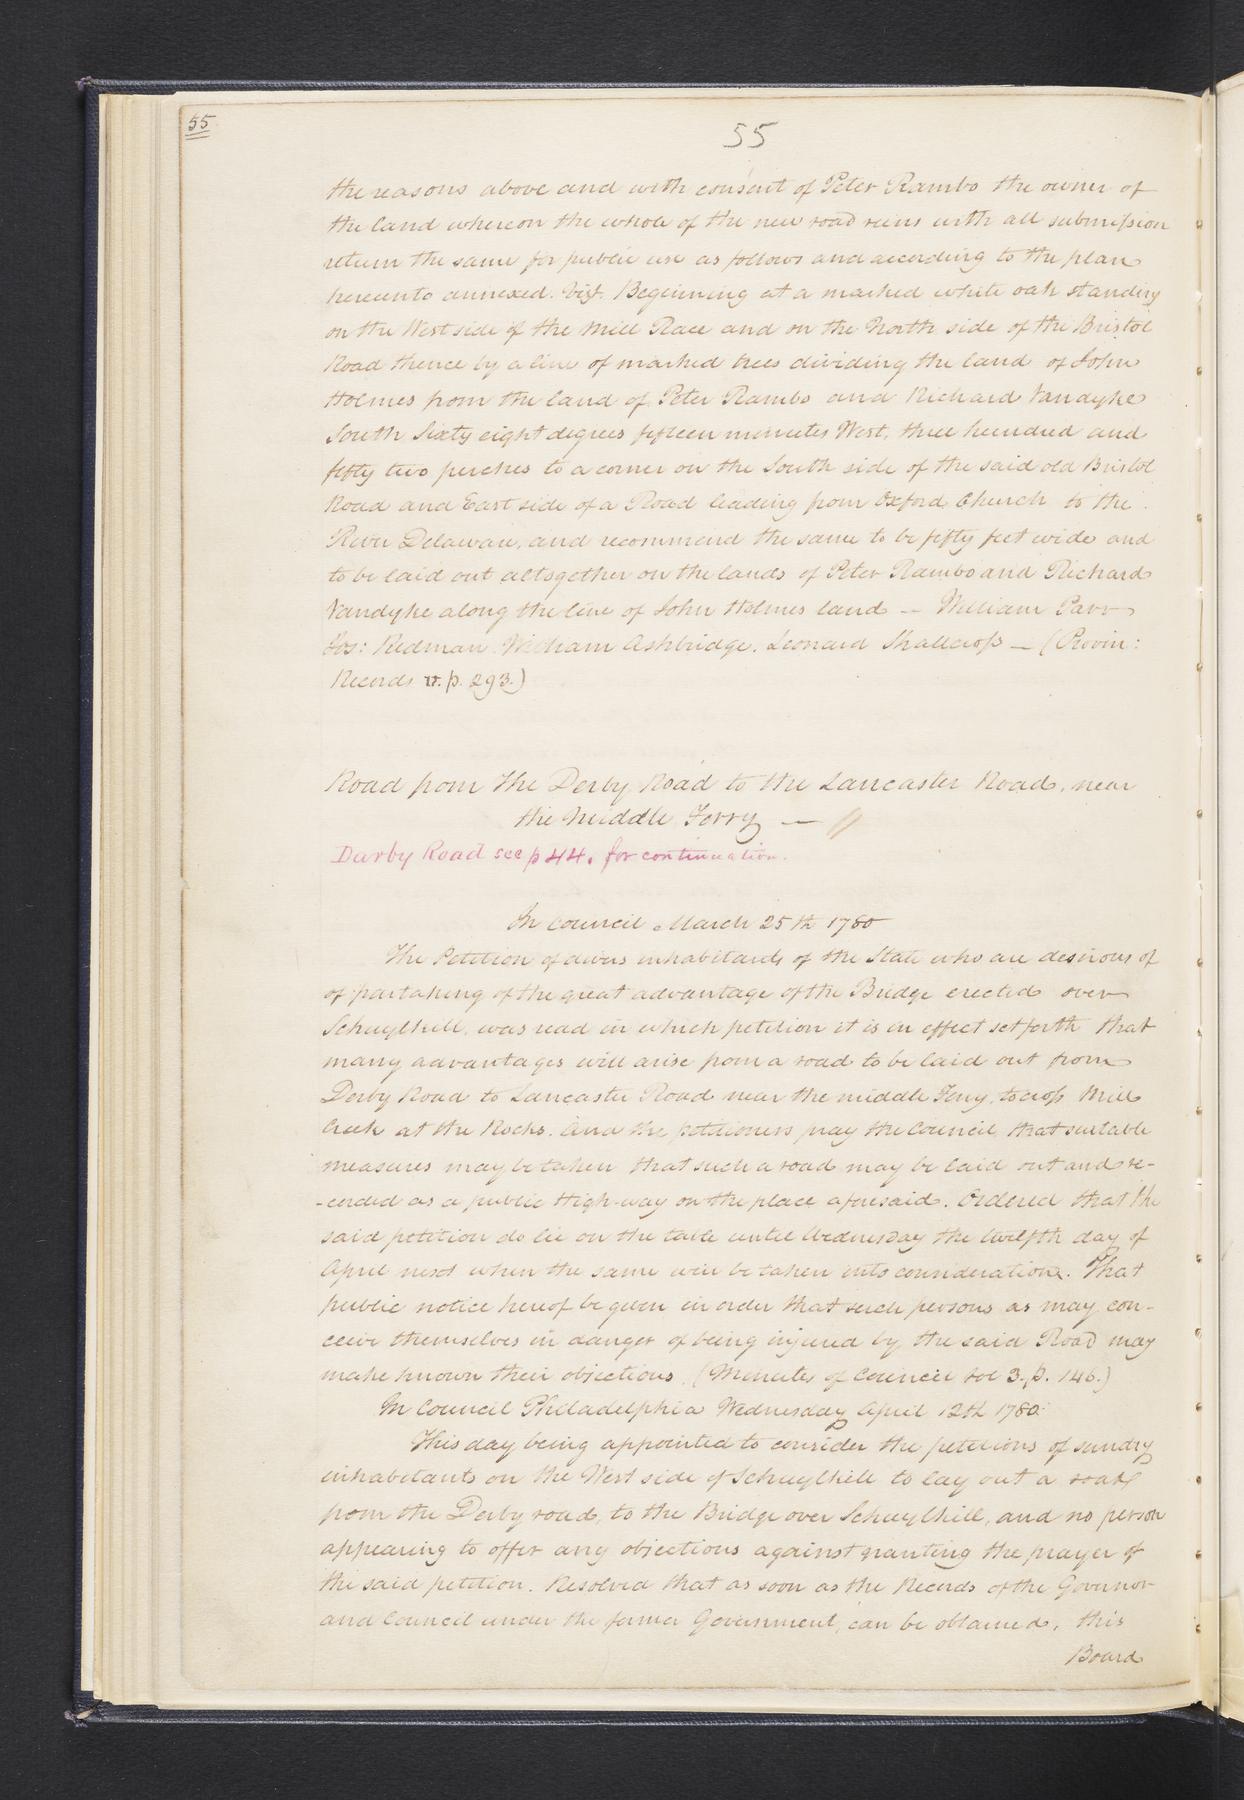 55
55
the reasons above and with consent of Peter Rambo the owner of
the land whereon the whole of the new road runs with all submission
return the same for public use as follows and according to the plan
hereunto annexed. Vizt. Beginning at a marked white oak standing
on the West side of the Mill Race and on the North side of the Bristol
Road thence by a line of marked trees dividing the land of John
Holmes from the land of Peter Rambo and Richard Vandyke
South Sixty eight degrees fifteen minutes West, three hundred and
fifty two perches to a corner on the South side of the said old Bristol
Road and East side of a Road leading from Oxford Church to the
River Delaware, and recommend the same to be fifty feet wide and
to be laid out altogether on the lands of Peter Rambo and Richard
Vandyke along the line of John Holmes land — William Parr
Jos: Redman. William Ashbridge. Leonard Shallcross — (Provin:
Records p. 293.)
Road from the Derby Road to the Lancaster Road, near
the Middle Ferry — "
Darby Road see p 44. for continuation.
In Council March 25th 1780
The Petition of divers inhabitants of the State who are desirous of
of partaking of the great advantage of the Bridge erected over
Schuylkill, was read in which petition it is in effect set forth that
many advantages will arise from a road to be laid out from
Derby Road to Lancaster Road near the middle Ferry, to cross Mill
Creek at the Rocks. And the petitioners pray the Council that suitable
measures may be taken that such a road may be laid out and re-
-corded as a public High-way on the place aforesaid. Ordered that the
said petition do lie on the table until Wednesday the twelfth day of
April next when the same will be taken into consideration. That
public notice hereof be given in order that such persons as may con-
ceive themselves in danger of being injured by the said Road may
make known their objections (Minutes of Council vol 3. p. 146.)
In Council Philadelphia Wednesday April 12th 1780:
This day being appointed to consider the petitions of sundry
inhabitants on the West side of Schuylkill to lay out a road
from the Derby road, to the Bridge over Schuylkill, and no person
appearing to offer any objections against granting the prayer of
the said petition. Resolved that as soon as the Records of the Governor
and Council under the former Government, can be obtained, this
Board